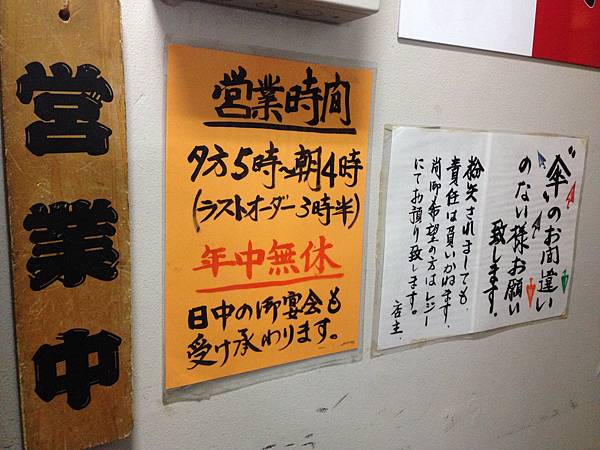 営業中
営業時間
夕方5時~朝4時
(ラストオーダー3時半)
年中無休
日中の御宴会も
受け承わります。
"傘"のお間違い
のない様お願い
致します。
紛失されましても、
責任は負いかねます。
尚御希望の方はレジー
にてお預り致します。
店主.